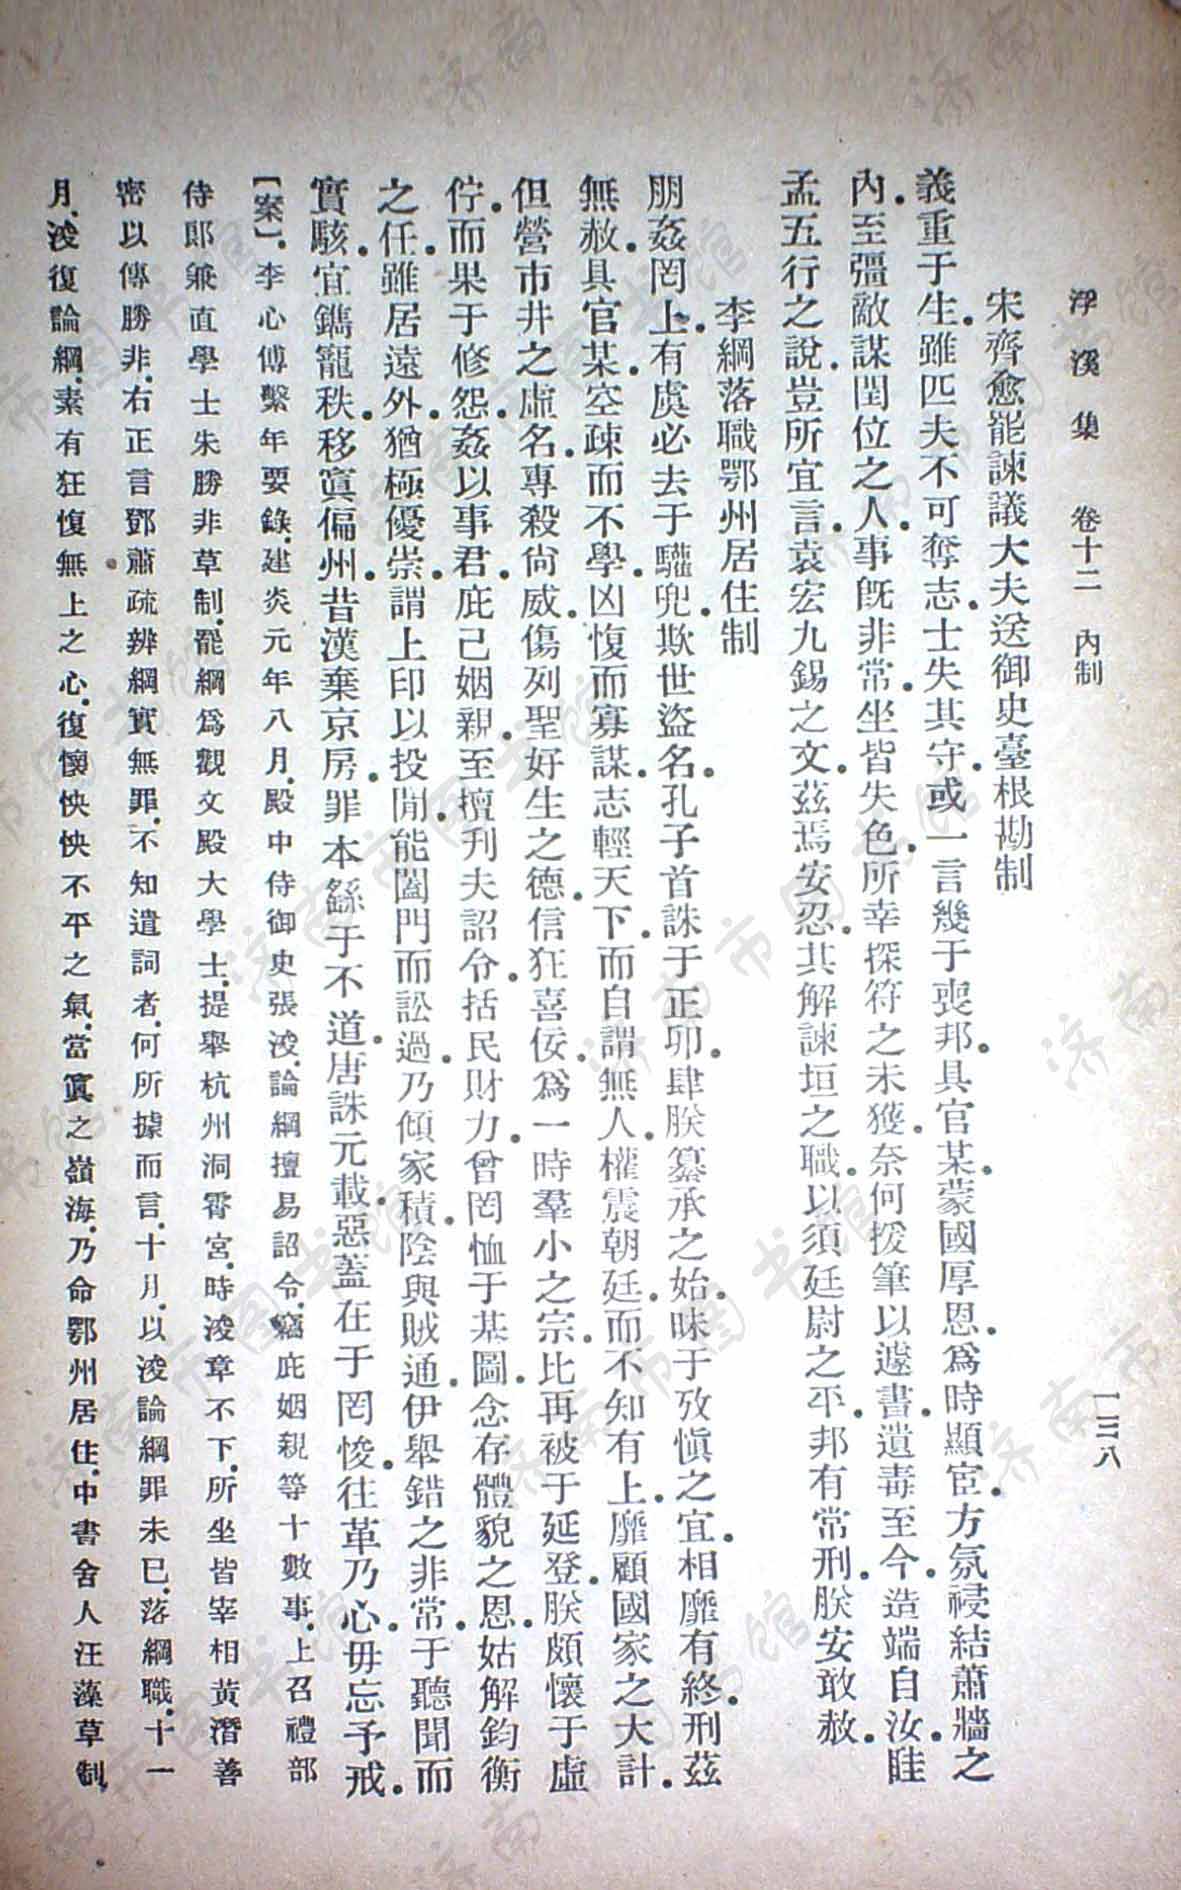 浮溪集 卷十二 內制 一三八
宋齊愈罷諫議大夫送御史臺根勘制
義重于生.雖匹夫不可奪志.士失其守.或一言幾于喪邦.具官某.蒙國厚恩.爲時顯宦.方氛祲結蕭牆之
內.至彊敵謀閏位之人.事旣非常.坐皆失色.所幸探符之未獲.奈何援筆以遽書.遺毒至今.造端自汝.眭
孟五行之說.豈所宜言.袁宏九錫之文.茲焉安忍.其解諫垣之職.以須廷尉之平.邦有常刑.朕安敢赦.
李綱落職鄂州居住制
朋姦罔上.有虞必去于驩兜.欺世盜名.孔子首誅于正卯.肆朕纂承之始.昧于攷愼之宜.相靡有終.刑茲
無赦.具官某.空疎而不學.凶愎而寡謀.志輕天下.而自謂無人.權震朝廷.而不知有上.靡顧國家之大計.
但營市井之虛名.專殺尙威.傷列聖好生之德.信狂喜佞.爲一時羣小之宗.比再被于延登.朕頗懷于虛
佇.而果于修怨.姦以事君.庇己姻親.至擅刋夫詔令.括民財力.曾罔恤于基圖.念存體貌之恩.姑解鈞衡
之任.雖居遠外.猶極優崇.謂上印以投閒.能闔門而訟過.乃傾家積.陰與賊通.伊舉錯之非常.于聽聞而
實駭.宜鐫寵秩.移寘偏州.昔漢棄京房.罪本繇于不道.唐誅元載.惡蓋在于罔悛.往革乃心.毋忘予戒.
【案】.李心傳繫年要錄.建炎元年八月.殿中侍御史張浚.論綱擅易詔令.竊庇姻親等十數事.上召禮部
侍郞兼直學士朱勝非草制.罷綱爲觀文殿大學士.提舉杭州洞霄宮.時浚章不下.所坐皆宰相黃潛善
密以傳勝非.右正言鄧肅疏辨綱實無罪.不知遣詞者.何所據而言.十月.以浚論綱罪未已.落綱職.十一
月.浚復論綱.素有狂愎無上之心.復懷怏怏不平之氣.當寘之嶺海.乃命鄂州居住.中書舍人汪藻草制.